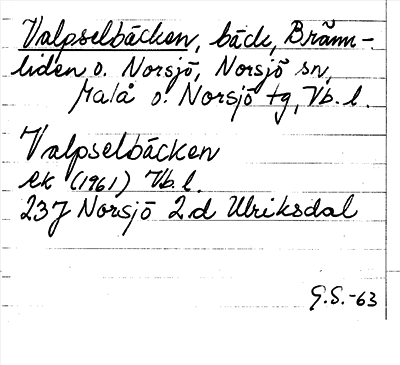 Valpselbäcken, bäck, Bränn-
liden o. Norsjö, Norsjö sn,
Malå o. Norsjö tg, Vb. l.
Valpselbäcken
ek (1961) Vb. l.
237 Norsjö 2 d Ulriksdal
G.S.-63